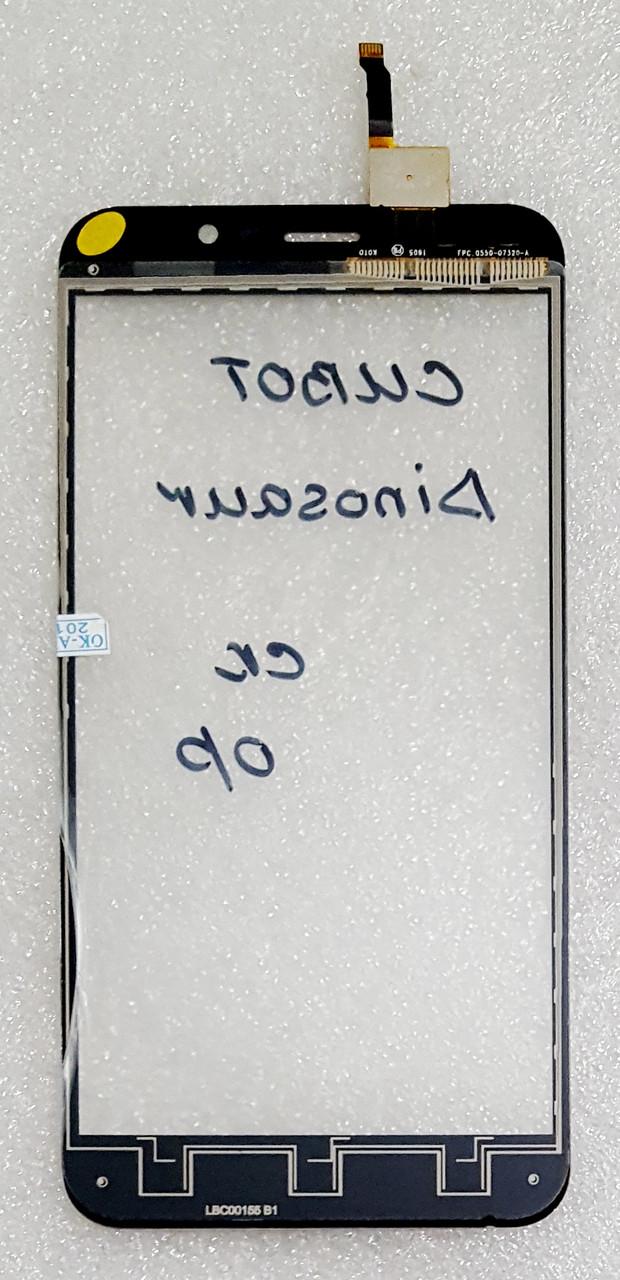 K01D 1605 FPC.0550-07320-A
CUBOT
Dinosaur
OK-A
201
LBC00155 B1